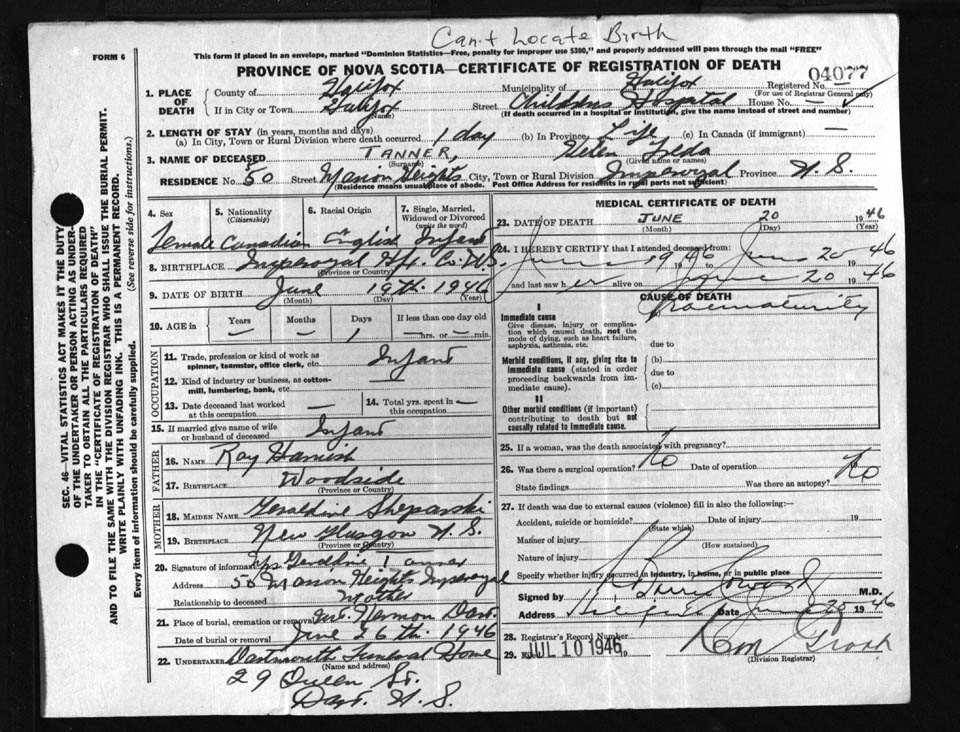 Can't Locate Birth
FORM 6
This form if placed in an envelope, marked "Dominion Statistics—Free, penalty for improper use $300," and properly addressed will pass through the mail "FREE"
PROVINCE OF NOVA SCOTIA—CERTIFICATE OF REGISTRATION OF DEATH
04077
1. PLACE OF DEATH
County of Halifax
Municipality of Halifax
Registered No. —
(For use of Registrar General only)
If in City or Town Halifax
(Name)
Street Childrens Hospital House No. —
(If death occurred in a hospital or institution, give the name instead of street and number)
2. LENGTH OF STAY (in years, months and days)
(a) In City, Town or Rural Division where death occurred 1 day (b) In Province Life (c) In Canada (if immigrant) —
3. NAME OF DECEASED TANNER, Helen
(Surname) (Given name or names)
RESIDENCE No. 50 Street Manson Heights City, Town or Rural Division Imperoyal Province N.S.
(Residence means usual place of abode. Post Office Address for residents in rural parts not sufficient)
4. Sex
5. Nationality (Citizenship)
6. Racial Origin
7. Single, Married, Widowed or Divorced (write the word)
Female Canadian English Infant
8. BIRTHPLACE Imperoyal Hfx. Co. N.S.
(Province or Country)
9. DATE OF BIRTH June 19th. 1946
(Month) (Day) (Year)
10. AGE in Years Months Days If less than one day old
— — 1 — hrs. or — min.
OCCUPATION
11. Trade, profession or kind of work as spinner, teamster, office clerk, etc. Infant
12. Kind of industry or business, as cotton-mill, lumbering, bank, etc. —
13. Date deceased last worked at this occupation —
14. Total yrs. spent in this occupation —
15. If married give name of wife or husband of deceased Infant
FATHER
16. Name Ray
17. Birthplace Woodside
(Province or Country)
MOTHER
18. Maiden Name Geraldine
19. Birthplace New Glasgow N.S.
(Province or Country)
20. Signature of informant Mrs Geraldine Tanner
Address 50 Manson Heights Imperoyal
Relationship to deceased Mother
21. Place of burial, cremation or removal Mt. Hermon Dart.
Date of burial or removal June 26th. 1946
22. Undertaker Dartmouth Funeral Home
(Name and address)
29 Queen St.
Dart. N.S.
MEDICAL CERTIFICATE OF DEATH
23. DATE OF DEATH JUNE 20 1946
(Month) (Day) (Year)
24. I HEREBY CERTIFY that I attended deceased from:
June 1946 to June 20 1946
and last saw her alive on June 20 1946
CAUSE OF DEATH
I
Immediate cause
Give disease, injury or complication which caused death, not the mode of dying, such as heart failure, asphyxia, asthenia, etc.
Prematurity
due to
Morbid conditions, if any, giving rise to immediate cause (stated in order proceeding backwards from immediate cause).
(b)
due to
(c)
II
Other morbid conditions (if important) contributing to death but not causally related to immediate cause.
25. If a woman, was the death associated with pregnancy?
26. Was there a surgical operation? No Date of operation
State findings Was there an autopsy? No
27. If death was due to external causes (violence) fill in also the following:
Accident, suicide or homicide? Date of injury 19
(State which)
Manner of injury
(How sustained)
Nature of injury
Specify whether injury occurred in industry, in home, or in public place
Signed by M.D.
Address Halifax Date June 1946
28. Registrar's Record Number
29. JUL 10 1946
(Division Registrar)
SEC. 46—VITAL STATISTICS ACT MAKES IT THE DUTY OF THE UNDERTAKER OR PERSON ACTING AS UNDERTAKER TO OBTAIN ALL THE PARTICULARS REQUIRED IN THE "CERTIFICATE OF REGISTRATION OF DEATH"
AND TO FILE THE SAME WITH THE DIVISION REGISTRAR WHO SHALL ISSUE THE BURIAL PERMIT.
WRITE PLAINLY WITH UNFADING INK. THIS IS A PERMANENT RECORD.
Every item of information should be carefully supplied. (See reverse side for instructions.)